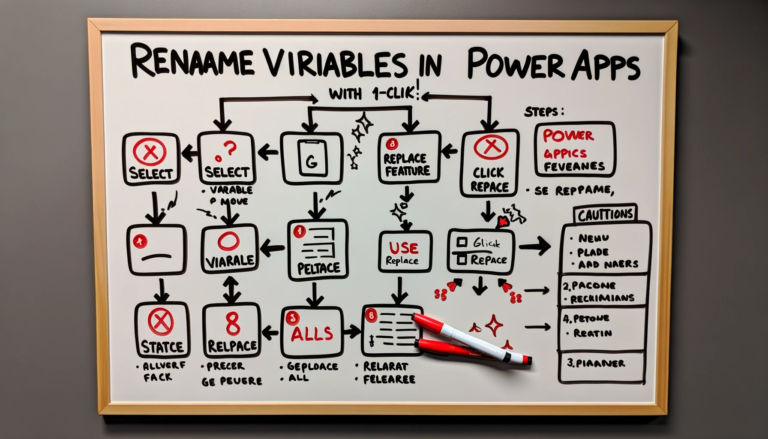 RENAAME VIRIABLES IN POWER APPS
WITH 1-CLIK!
STEPS:
SELECT
.?
SELECT
• VARABLE
P MOVE
G
REPLACE
FEATTURE
CLICK
REPACE
POWER
APPICS
FEVEANES
• SE REPPAME,
VIARALE
PELTACE
USE
Replace
Glick
Repace
CAUTTIONS
• NEWU
• PLADE
• AAD NAERS
2.PACONE
• RECKIMIANS
4.PETONE
• REATIN
3.PIAANER
STATCE
• ALLVERF
FACK
8
RELPACE
• PRECER
GE PEVERE
ALLS
• GEPLOACE
• ALL
• RELARAT
• FELEAREE